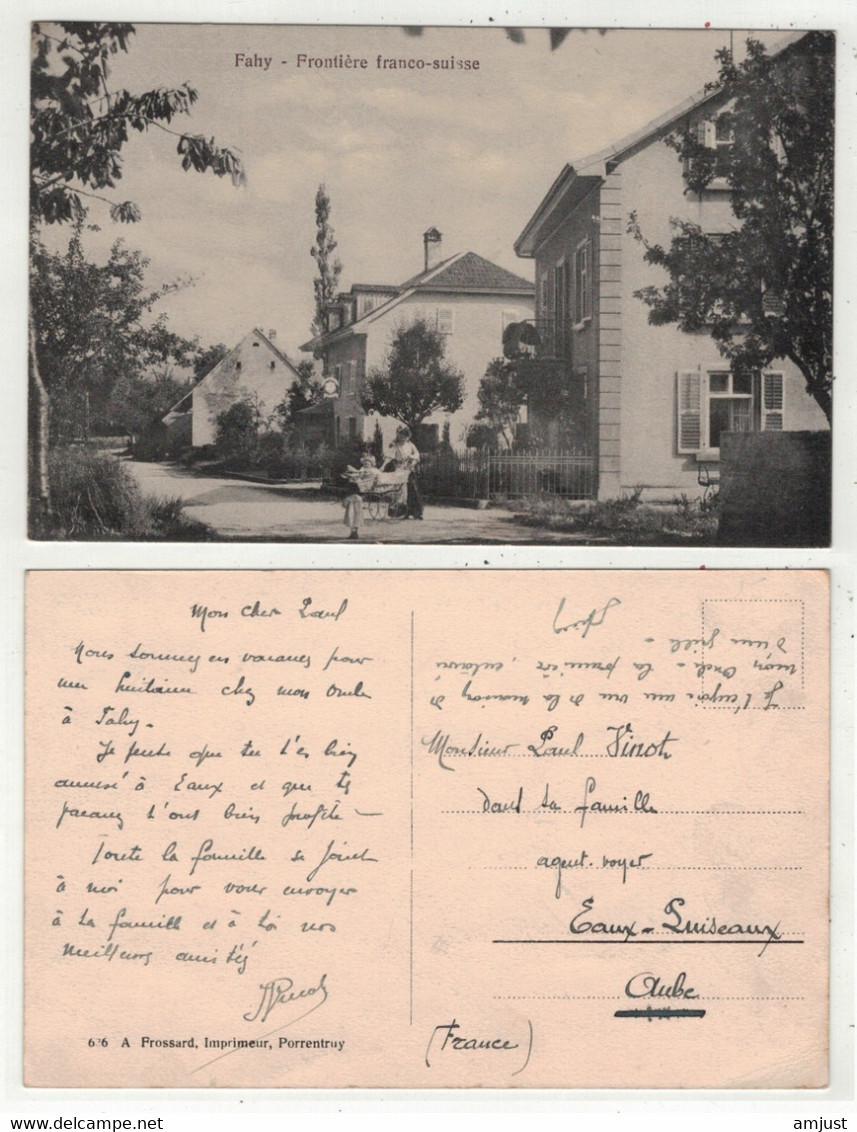 Fahy - Frontière franco-suisse
Mon cher Paul
Nous sommes en vacances pour
une huitaine chez mon oncle
à Fahy.
Je pense que tu t'es bien
amusé à Eaux et que tes
vacances t'ont bien profité -
Toute la famille se joint
à moi pour vous envoyer
à ta famille et à toi nos
meilleurs amitiés
626 A Frossard, Imprimeur, Porrentruy
Je t'envoie une vue de la maison de
mon oncle - la première, entourée
d'une grille -
Monsieur Paul Vinot
dans sa famille
agent-voyer
Eaux-Puiseaux
Aube
(France)
amjust